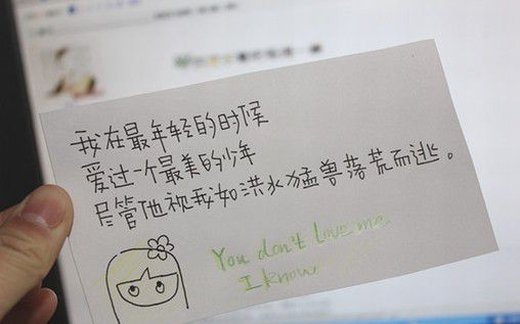 我在最年轻的时候
爱过一个最美的少年
尽管他视我如洪水猛兽落荒而逃。
You don't Love me.
I know